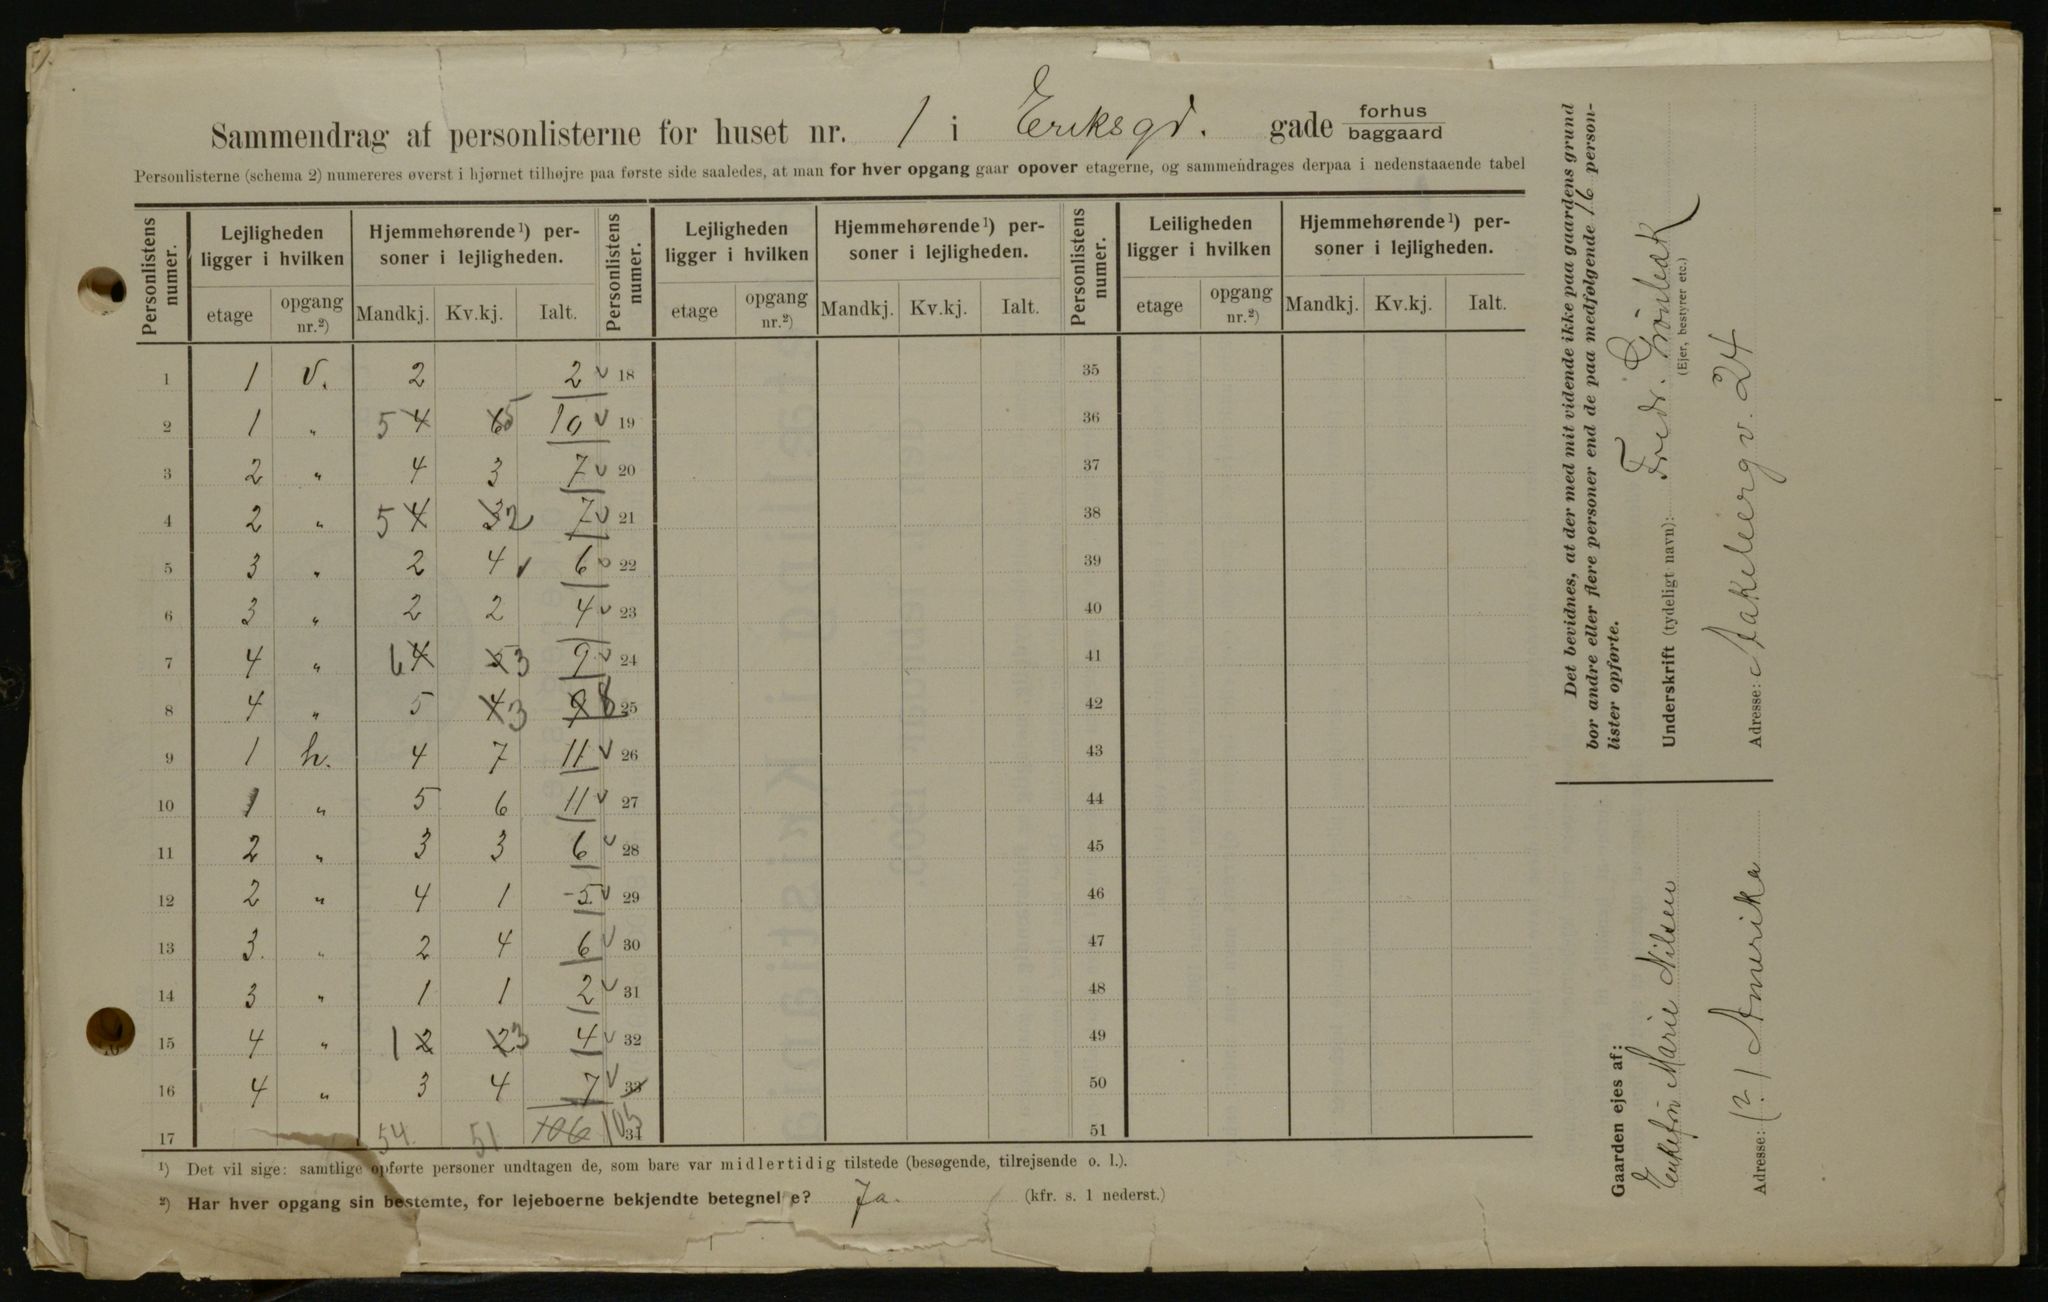 Sammendrag af personlisterne for huset nr. 1 i Eriksgd. gade forhus baggaard
Personlisterne (schema 2) numereres øverst i hjørnet tilhøjre paa første side saaledes, at man for hver opgang gaar opover etagerne, og sammendrages derpaa i nedenstaaende tabel
Personlistens numer. Lejligheden ligger i hvilken Hjemmehørende¹) personer i lejligheden. Personlistens numer. Lejligheden ligger i hvilken Hjemmehørende¹) personer i lejligheden. Personlistens numer. Leiligheden ligger i hvilken Hjemmehørende¹) personer i lejligheden.
etage opgang nr.²) Mandkj. Kv.kj. Ialt. etage opgang nr.²) Mandkj. Kv.kj. Ialt. etage opgang nr.²) Mandkj. Kv.kj. Ialt.
1 1 v. 2 2 18 35
2 1 " 5 4 6 5 10 19 36
3 2 " 4 3 7 20 37
4 2 " 5 4 3 2 7 21 38
5 3 " 2 4 6 22 39
6 3 " 2 2 4 23 40
7 4 " 6 4 5 3 9 24 41
8 4 " 5 4 3 9 8 25 42
9 1 h. 4 7 11 26 43
10 1 " 5 6 11 27 44
11 2 " 3 3 6 28 45
12 2 " 4 1 5 29 46
13 3. " 2 4 6 30 47
14 3 " 1 1 2 31 48
15 4 " 1 2 2 3 4 32 49
16 4 " 3 4 7 33 50
17 54. 51 106 105 34 51
¹) Det vil sige: samtlige opførte personer undtagen de, som bare var midlertidig tilstede (besøgende, tilrejsende o. l.).
²) Har hver opgang sin bestemte, for lejeboerne bekjendte betegnelse? Ja. (kfr. s. 1 nederst.)
Det bevidnes, at der med mit vidende ikke paa gaardens grund
bor andre eller flere personer end de paa medfølgende 16 person-
lister opførte.
Underskrift (tydeligt navn): Fredr. Grönbeck
(Ejer, bestyrer etc.)
Adresse: Aakebergv. 24
Gaarden ejes af:
Enkefru Marie Nilsen
Adresse: (?) Amerika